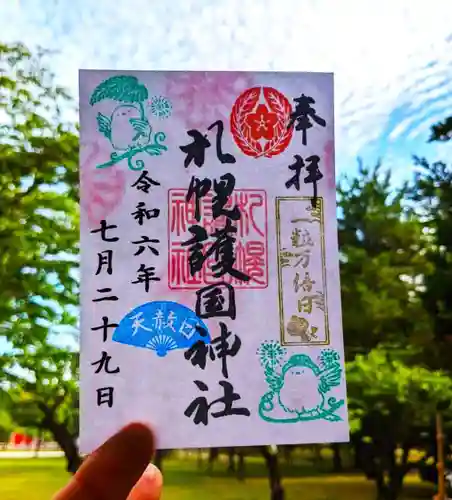 奉拝
一粒万倍日
札幌護国神社
札幌護国神社
天赦日
令和六年
七月二十九日